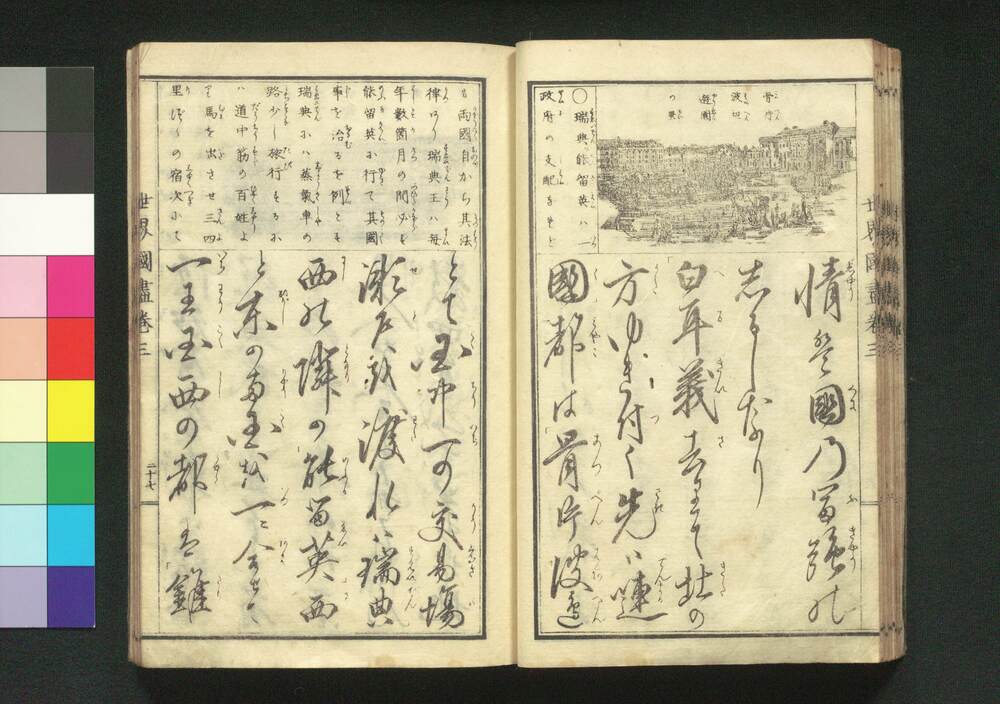 骨片
波辺
遊園
の景
○瑞典、能留英ハ一
政府の支配なれど
情は国乃富強の
志るしなり
白耳義去りて北の
方ゆき付く先ハ嗹
国都は「骨片波辺
も両國自から其法
律あり瑞典王ハ毎
年数箇月の間必ず
能留英に行て其國
事を治るを例とす
瑞典にハ蒸氣車の
路少し旅行するに
ハ道中筋の百姓よ
り馬を出させ三四
里づゝの宿次にて
とて国中一の交易場
瀬戸越渡れハ瑞典
西の隣の能留英西
と東の両国を一ニ合せて
一王国西の都を
世界國盡巻三
二十七
世界國盡巻三